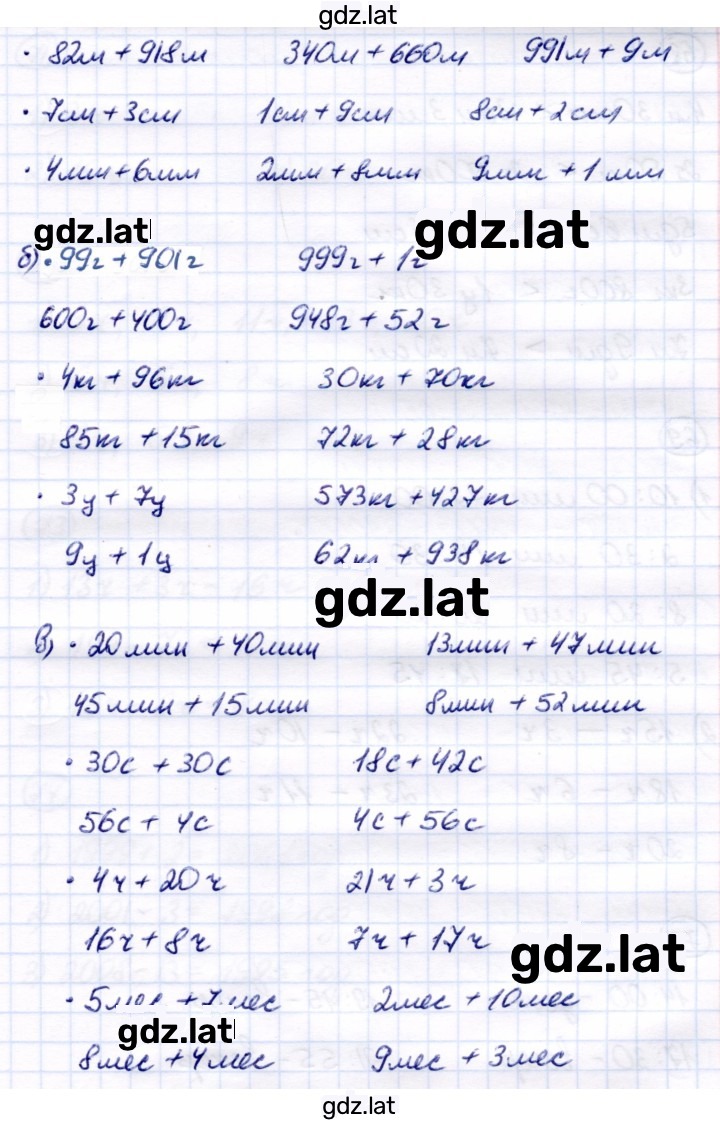 gdz.lat
· 82м + 918м 340м + 660м 991м + 9м
· 7см + 3см 1см + 9см 8см + 2см
· 4мм + 6мм 2мм + 8мм 9мм + 1мм
gdz.lat gdz.lat
б) · 99г + 901г 999г + 1г
600г + 400г 948г + 52г
· 4кг + 96кг 30кг + 70кг
85кг + 15кг 72кг + 28кг
· 3ц + 7ц 573кг + 427кг
9ц + 1ц 62кг + 938кг
gdz.lat
в) · 20мин + 40мин 13мин + 47мин
45мин + 15мин 8мин + 52мин
· 30с + 30с 18с + 42с
56с + 4с 4с + 56с
· 4ч + 20ч 21ч + 3ч
16ч + 8ч 7ч + 17ч
gdz.lat
· 5мес + 7мес 2мес + 10мес
gdz.lat
8мес + 4мес 9мес + 3мес
gdz.lat